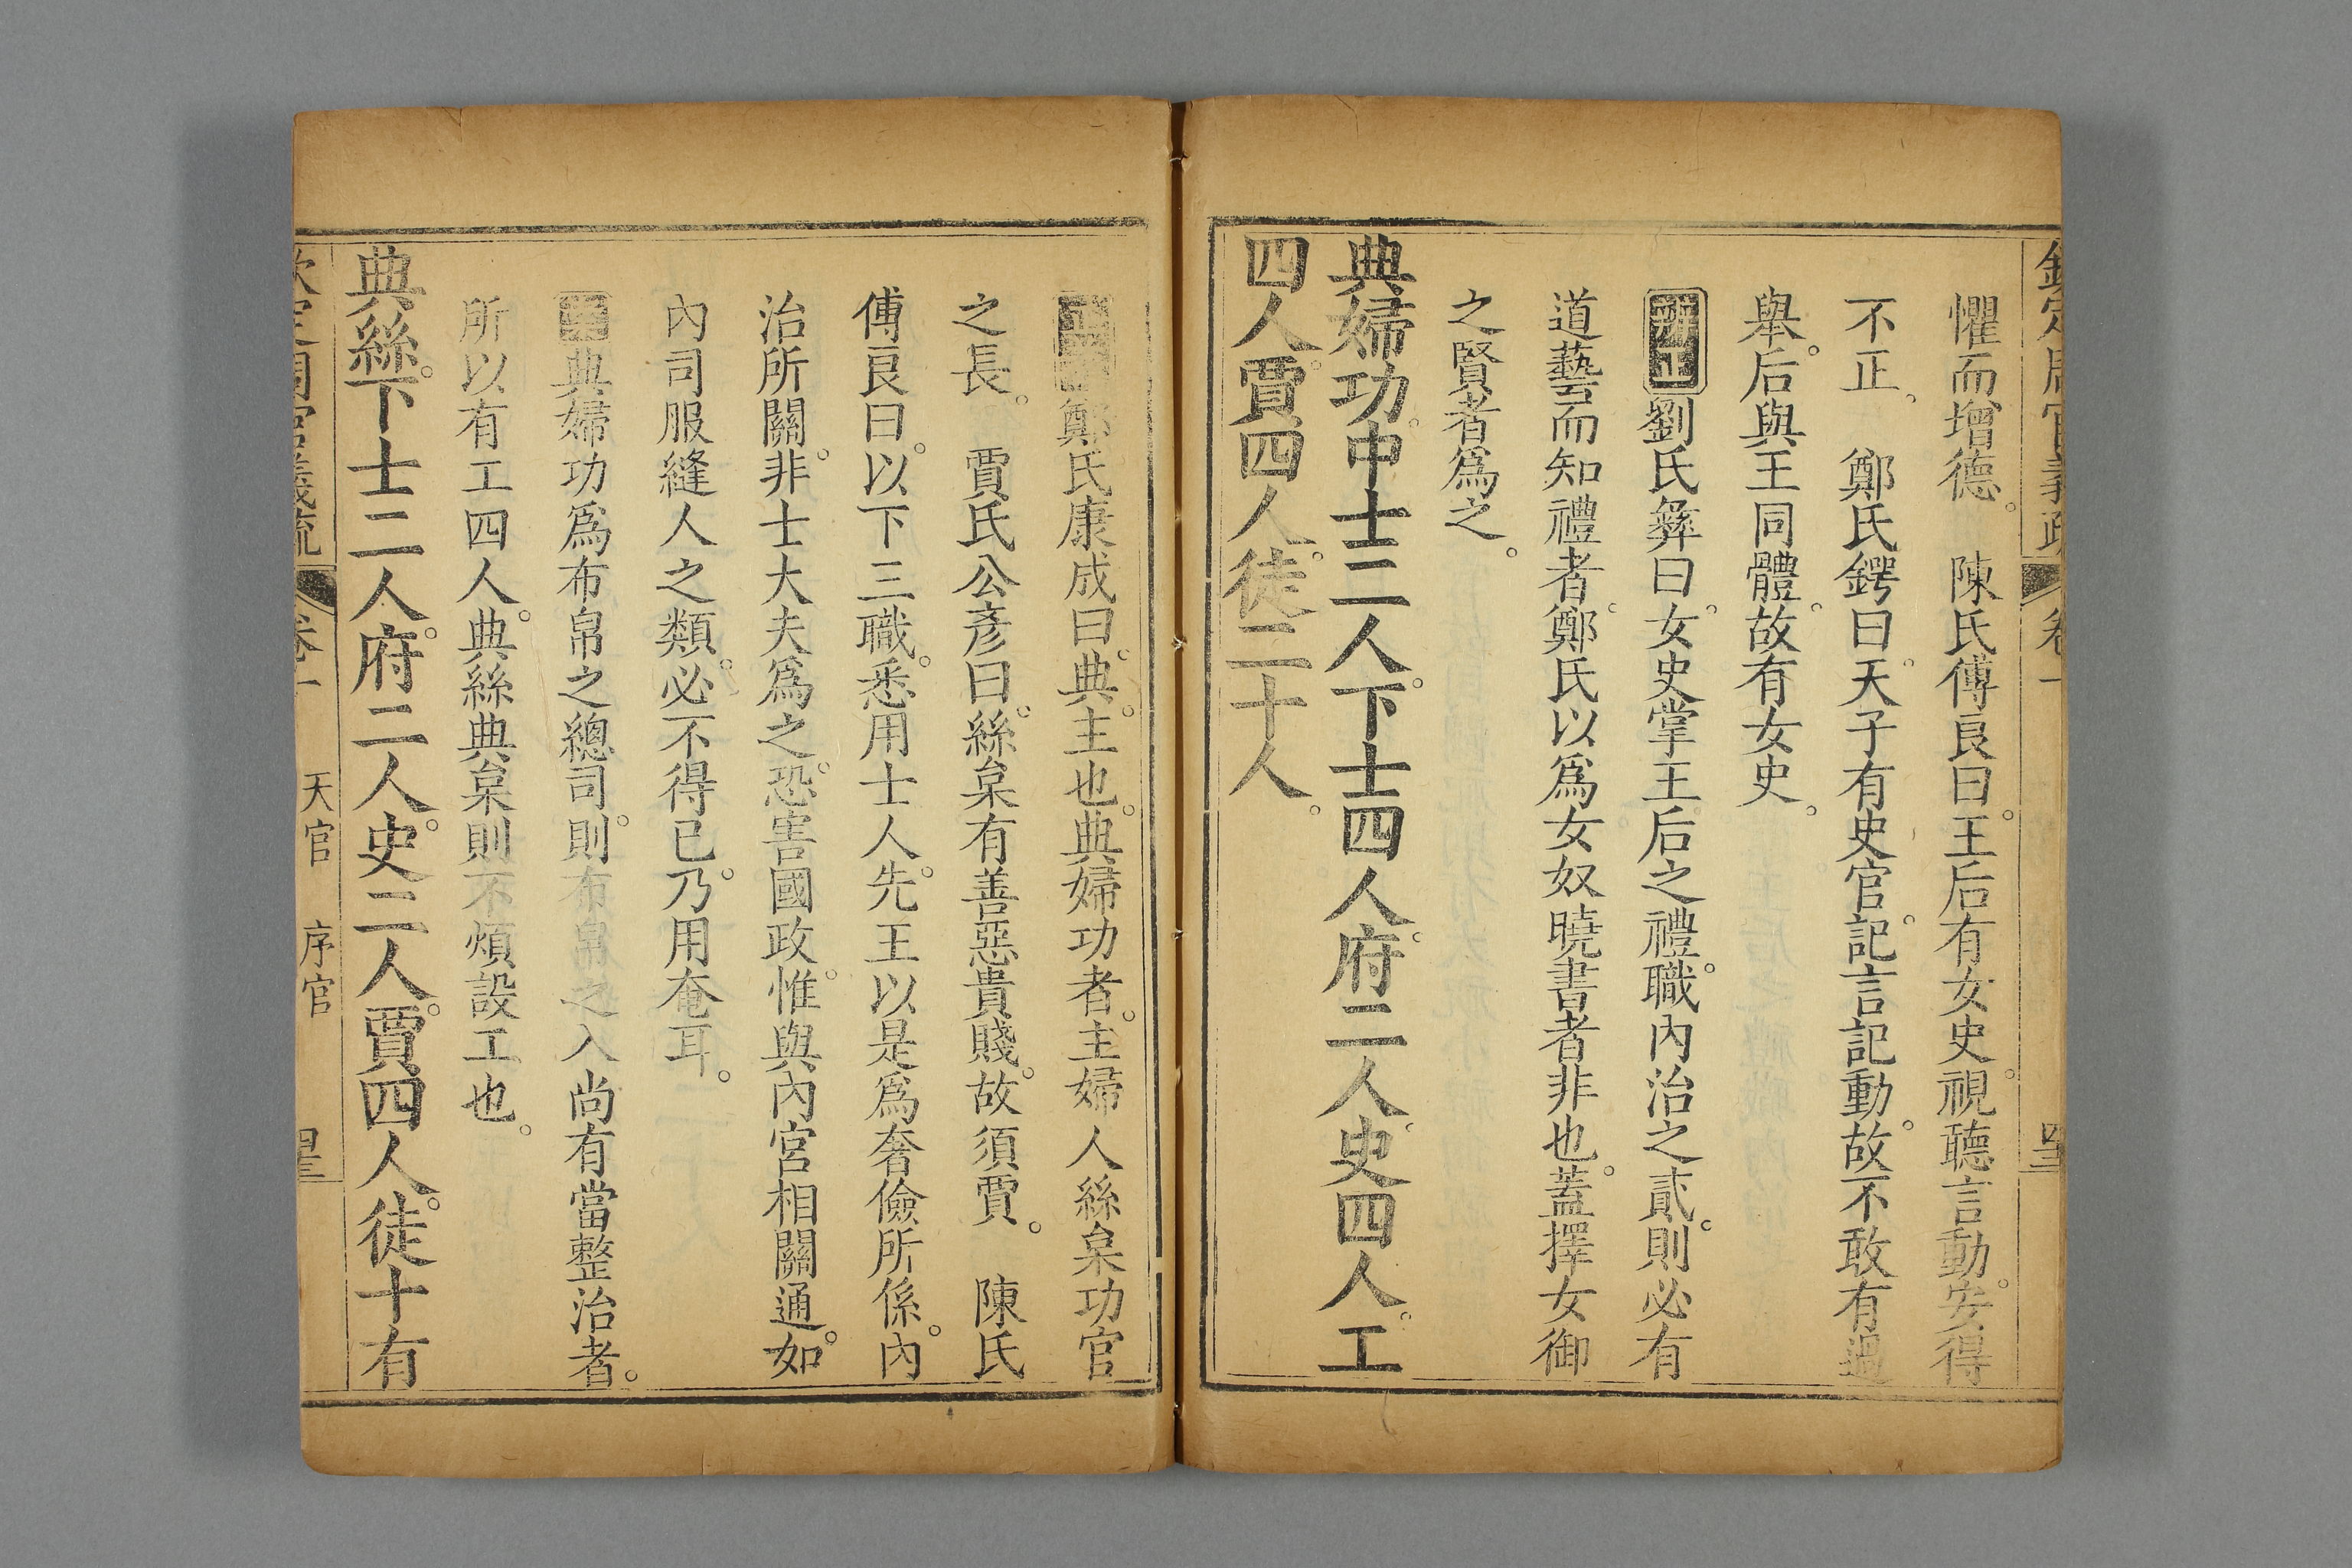 欽定周官義疏 卷一
懼而增德。 陳氏傅良曰。王后有女史。視聽言動。安得
不正。 鄭氏鍔曰。天子有史官。記言記動。故不敢有過
舉。后與王同體。故有女史。
辨正劉氏彝曰。女史掌王后之禮職。內治之貳。則必有
道藝而知禮者。鄭氏以爲女奴曉書者非也。蓋擇女御
之賢者爲之。
典婦功。中士二人。下士四人。府二人。史四人。工
四人。賈四人。徒二十人。
鄭氏康成曰。典。主也。典婦功者。主婦人絲枲功官
之長。 賈氏公彥曰。絲枲有善惡貴賤。故須賈。 陳氏
傅良曰。以下三職。悉用士人。先王以是爲奢儉所係。內
治所關。非士大夫爲之。恐害國政。惟與內宮相關通。如
內司服縫人之類。必不得已。乃用奄耳。
案典婦功爲布帛之總司。則布帛之入尚有當整治者。
所以有工四人。典絲典枲則不煩設工也。
典絲。下士二人。府二人。史二人。賈四人。徒十有
欽定周官義疏 卷一 天官 序官